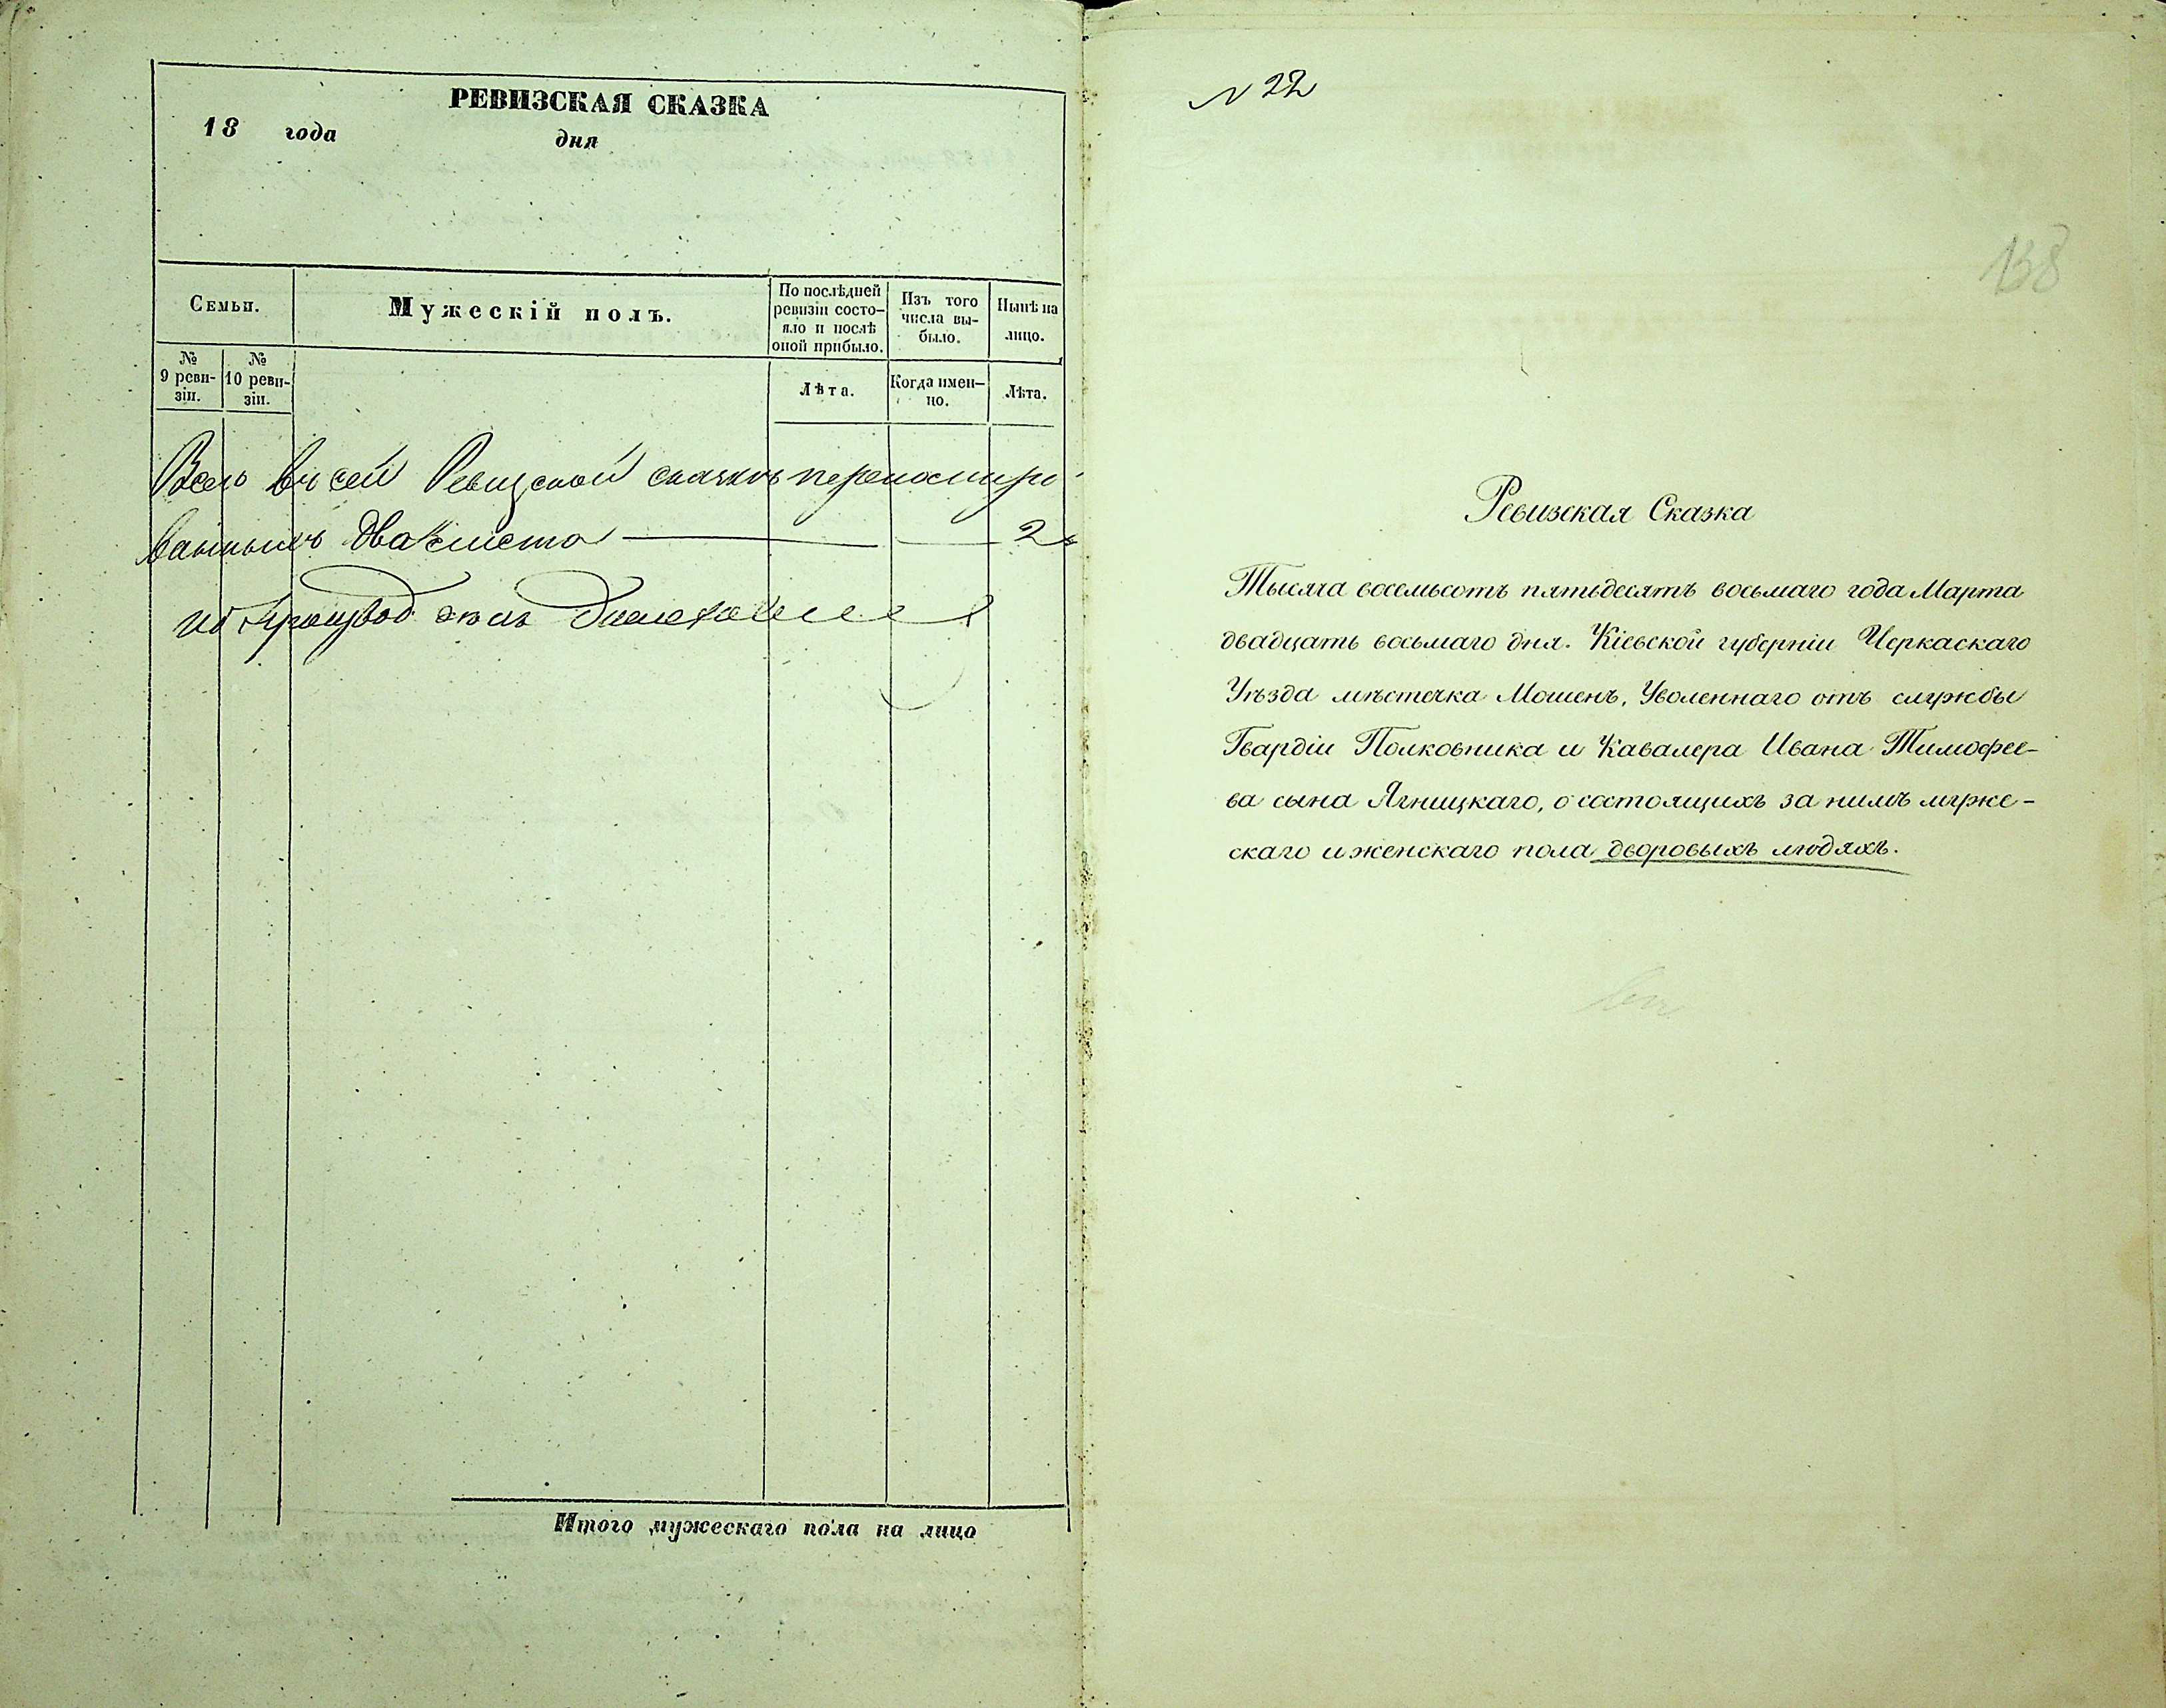 РЕВИЗСКАЯ СКАЗКА
18 года дня
Семьи.
№ 9 реви-зіи.
№ 10 реви-зіи.
Мужескій полъ.
По послѣдней
ревизіи состо-
яло и послѣ
оной прибыло.
Лѣта.
Изъ того
числа вы-
было.
Когда имен-
но.
Нынѣ на
лицо.
Лѣта.
Всего въ сей Ревизской сказкѣ перенумеро
ванныхъ два листа 2
Итого мужескаго пола на лицо
N 22
138
Ревизская Сказка
Тысяча восемьсотъ пятьдесятъ восьмаго года Марта
двадцать восьмаго дня. Кіевской губерніи Черкаскаго
Уѣзда мѣстечка Мошенъ, Уволеннаго отъ службы
Гвардіи Полковника и Кавалера Ивана Тимофее-
ва сына Ягницкаго, о состоящихъ за нимъ муже-
скаго и женскаго пола дворовыхъ людяхъ.